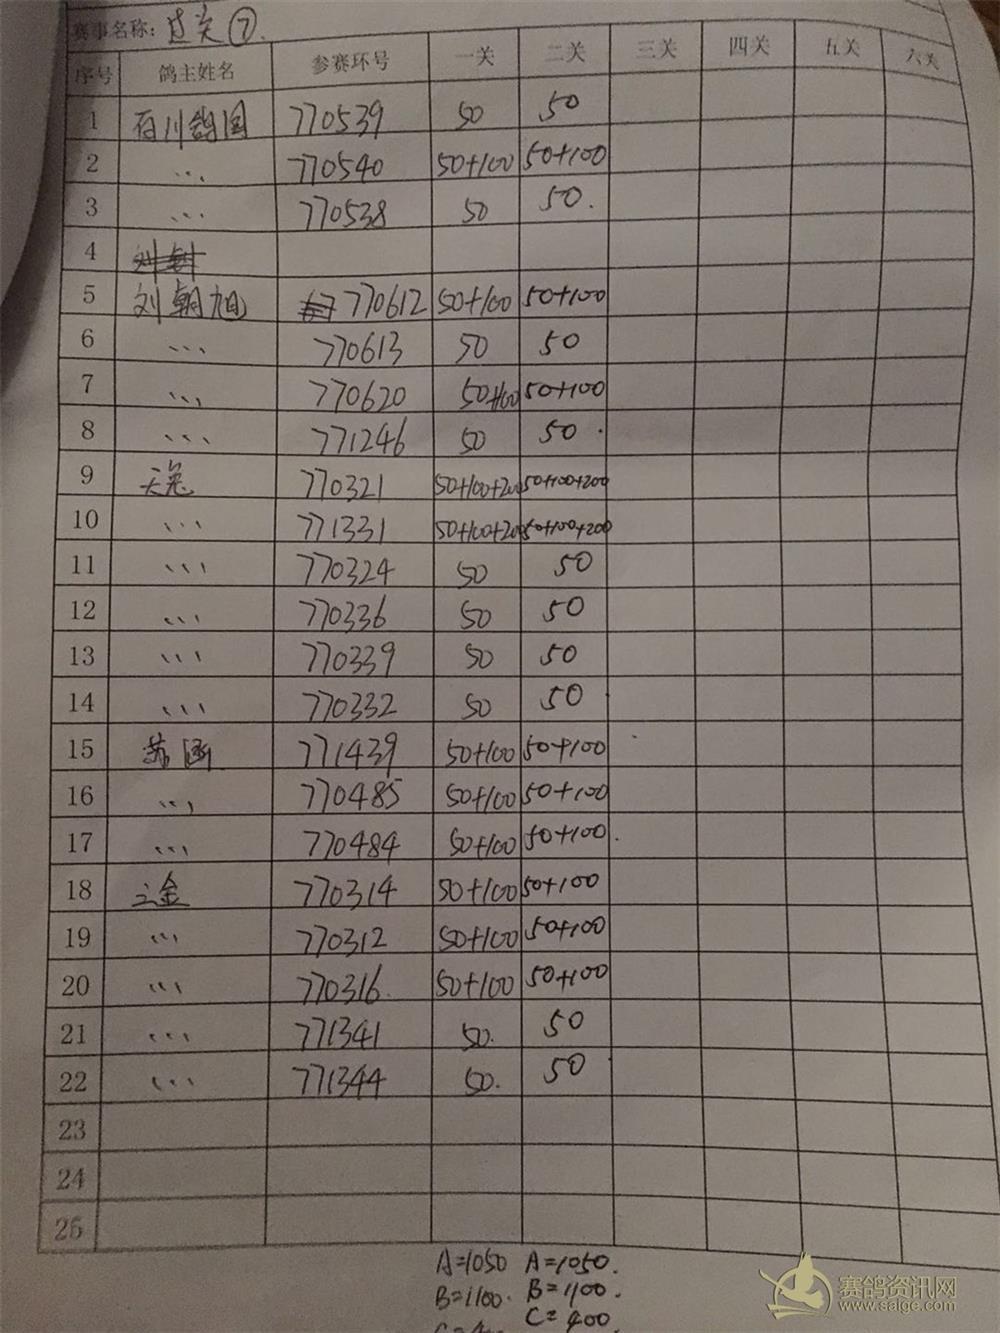 赛事名称：过关⑦.
序号 鸽主姓名 参赛环号 一关 二关 三关 四关 五关 六关
1 百川鸽国 770539 50 50
2 ... 770540 50+100 50+100
3 ... 770538 50 50.
4
5 刘朝旭 770612 50+100 50+100
6 ... 770613 50 50
7 ... 770620 50+100 50+100
8 ... 771246 50 50.
9 天兔 770321 50+100+200 50+100+200
10 ... 771331 50+100+200 50+100+200
11 ... 770324 50 50
12 ... 770336 50 50
13 ... 770339 50 50
14 ... 770332 50 50
15 771439 50+100 50+100
16 ... 770485 50+100 50+100
17 ... 770484 50+100 50+100.
18 三金 770314 50+100 50+100
19 ... 770312 50+100 50+100
20 ... 770316. 50+100 50+100
21 ... 771341 50. 50
22 ... 771344 50. 50
23
24
25
A=1050 A=1050.
B=1100. B=1100.
C=400.
赛鸽资讯网
www.saige.com